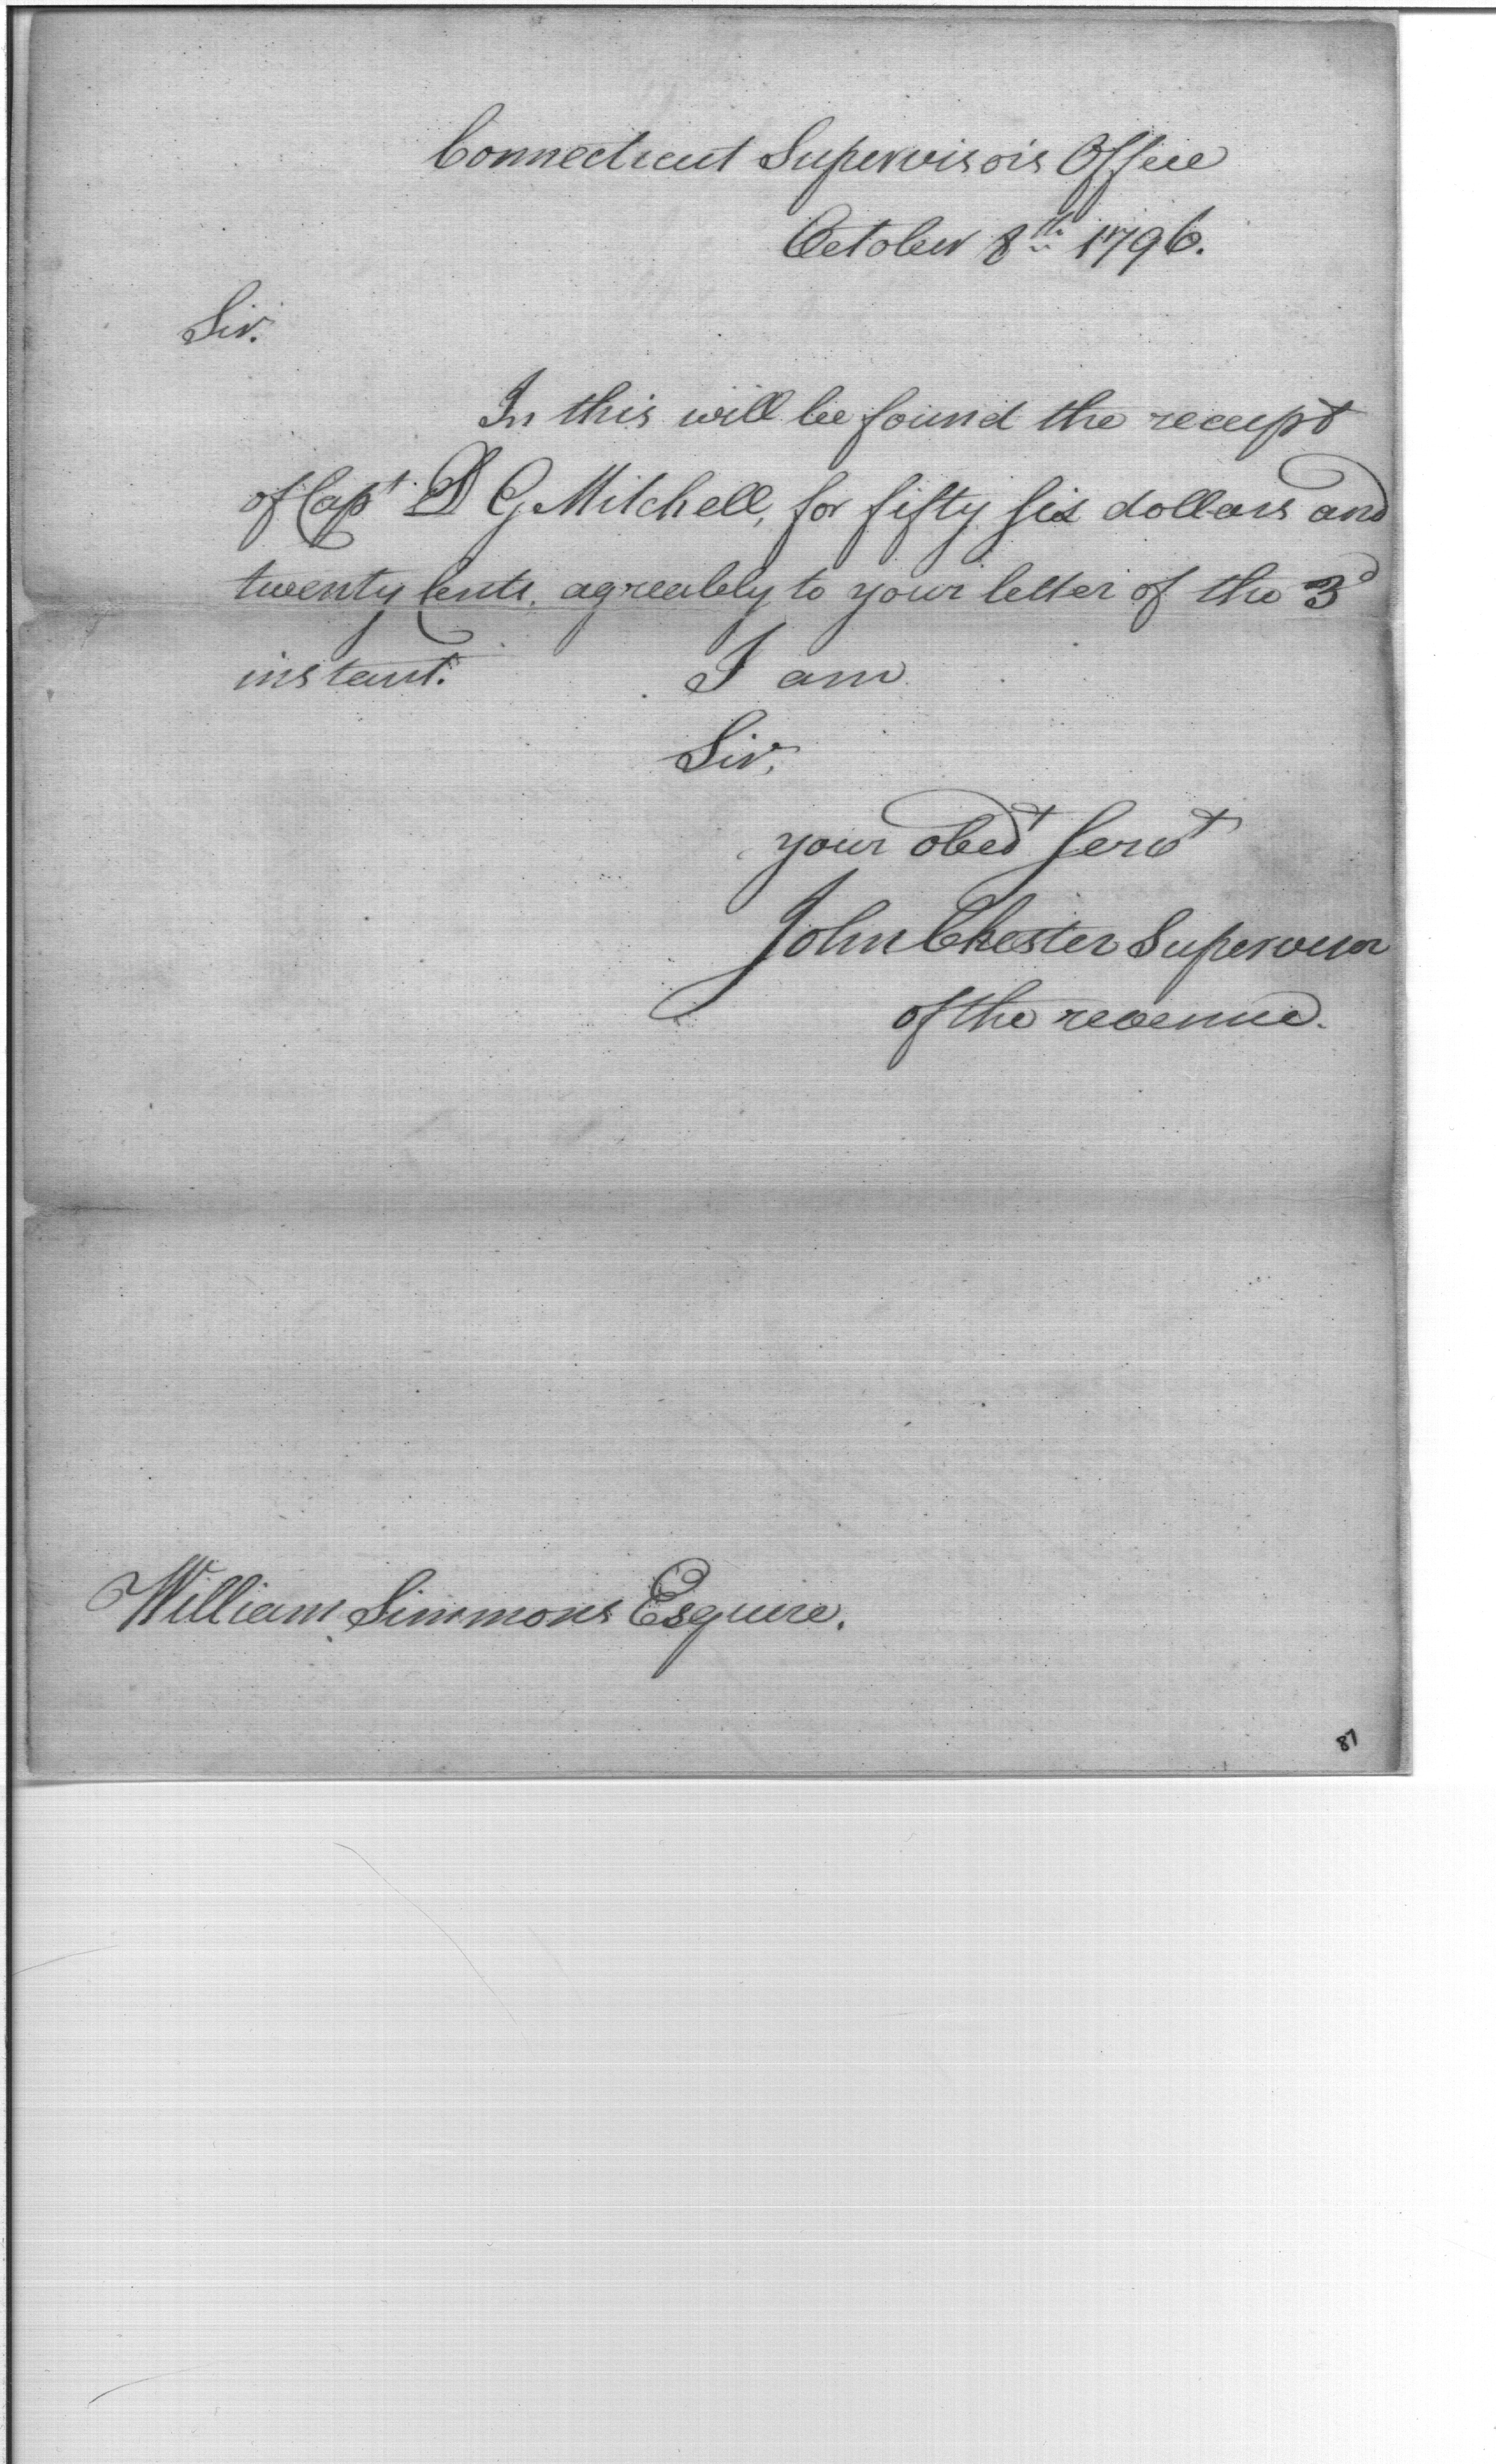 Connecticut Supervisors Office
October 8th 1796.
Sir.
In this will be found the receipt
of Capt D G Mitchell, for fifty six dollars and
twenty Cents. agreably to your letter of the 3d
instant. I am
Sir,
your obedt Servt
John Chester Supervisor
of the revenue.
William Simmons Esquire.
87